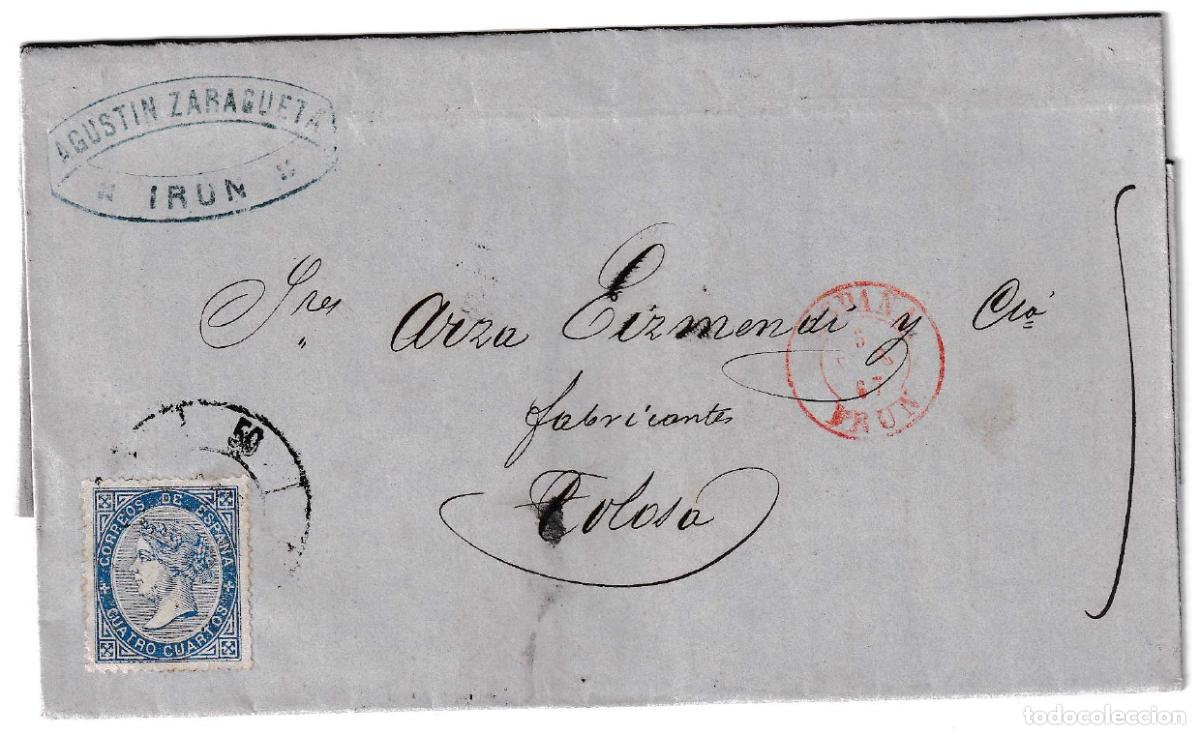 AGUSTIN ZARAGUETA
IRUN
Sres Arza Eizmendi y Cia
fabricantes
Tolosa
ESPAÑA
5
67
YRUN
50
CORREOS DE ESPAÑA
CUATRO CUARTOS
todocoleccion